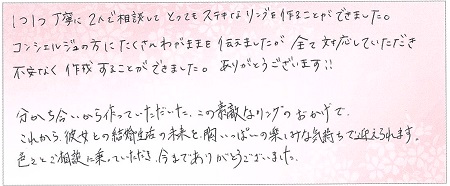 1つ1つ丁寧に2人で相談してとってもステキなリングを作ることができました。
コンシェルジュの方にたくさんわがままを伝えましたが全て対応していただき
不安なく作成することができました。ありがとうございます!!
分かち合いから作っていただいた、この素敵なリングのおかげで、
これから彼女との結婚生活の未来を、胸いっぱいの楽しみな気持ちで迎えられます。
色々とご相談に乗っていただき、今までありがとうございました。